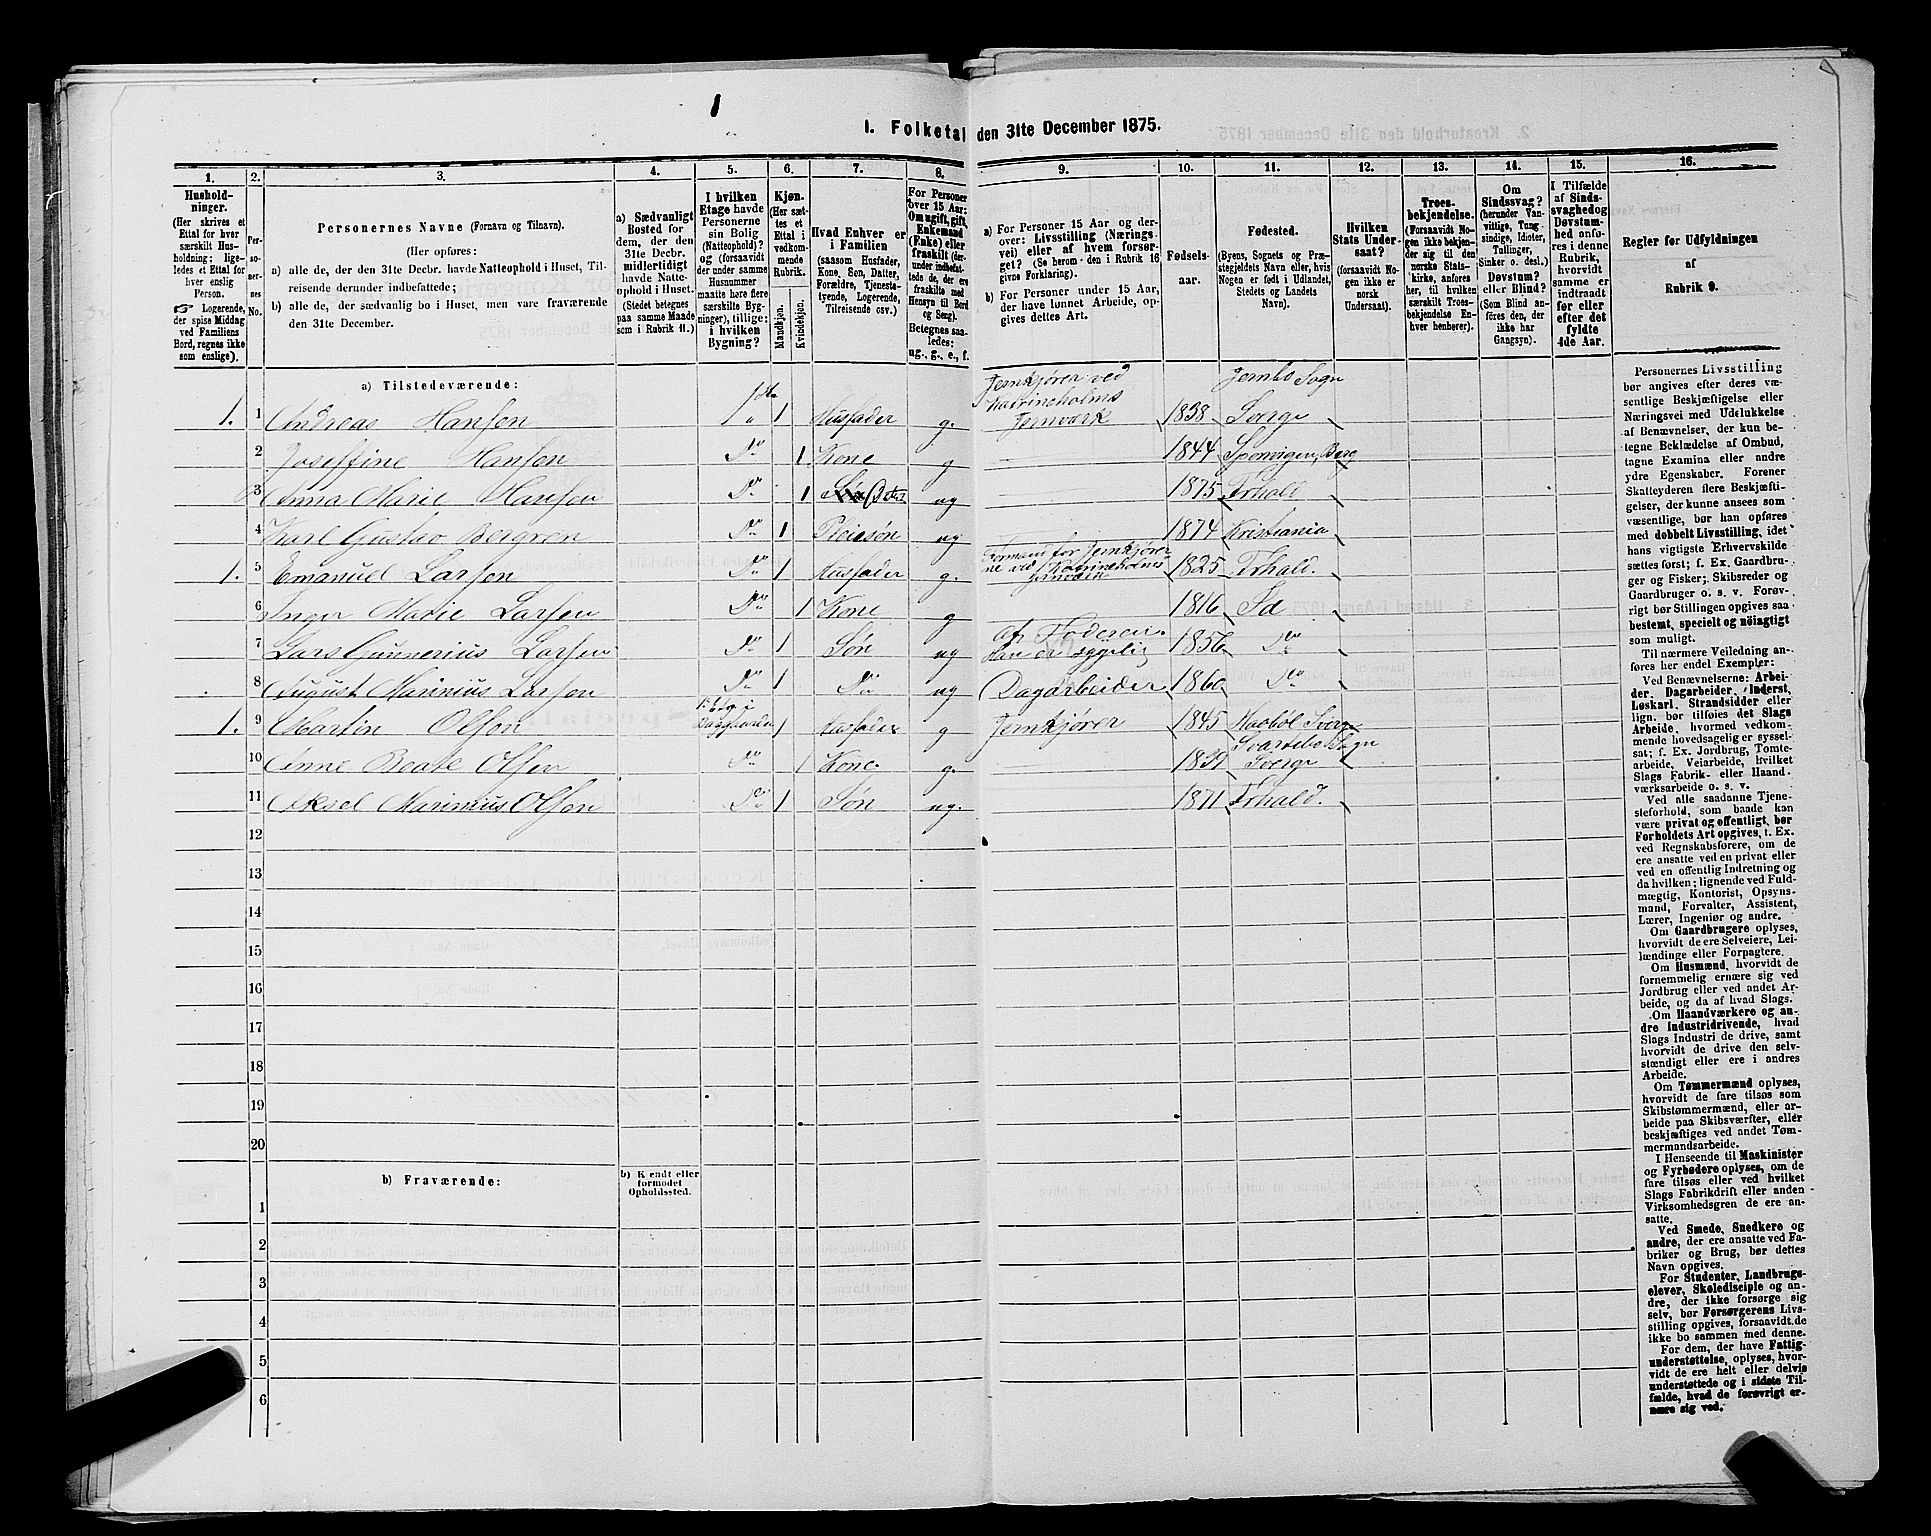 1. Folketal den 31te December 1875.
1. 2. 3. 4. 5. 6. 7. 8. 9. 10. 11. 12. 13. 14. 15. 16.
Hushold-
ninger.
(Her skrives et
Ettal for hver
særskilt Hus-
holdning; lige-
ledes et Ettal for
hver enslig
Person.
☞ Logerende,
der spise Middag
ved Familiens
Bord, regnes ikke
som enslige).
Per-
soner-
nes
No.
Personernes Navne (Fornavn og Tilnavn).
(Her opføres:
a) alle de, der den 31te Decbr. havde Natteophold i Huset, Til-
reisende derunder indbefattede;
b) alle de, der sædvanlig bo i Huset, men vare fraværende
den 31te December.
a) Sædvanligt
Bosted for
dem, der den
31te Decbr.
midlertidigt
havde Natte-
ophold i Huset.
(Stedet betegnes
paa samme Maade
som i Rubrik 11.)
I hvilken
Etage havde
Personerne
sin Bolig
(Natteophold)?
og (forsaavidt
der under samme
Husnummer
maatte høre flere
særskilte Byg-
ninger), tillige:
i hvilken
Bygning?
Kjøn.
(Her sæt-
tes et
Ettal i
vedkom-
mende
Rubrik.
Mandkjøn.
Kvindekjøn.
Hvad Enhver er
i Familien
(saasom Husfader,
Kone, Søn, Datter,
Forældre, Tjeneste-
tyende, Logerende,
Tilreisende osv.).
For Personer
over 15 Aar:
Om ugift, gift,
Enkemand
(Enke) eller
fraskilt (der-
under indbefat-
tede de, der ere
fraskilte med
Hensyn til Bord
og Seng).
Betegnes saa-
ledes:
ug., g., e., f.
a) For Personer 15 Aar og der-
over: Livsstilling (Nærings-
vei) eller af hvem forsør-
get? (Se herom - den i Rubrik 16
givne Forklaring).
b) For Personer under 15 Aar,
der have lønnet Arbeide, op-
gives dettes Art.
Fødsels-
aar.
Fødested.
(Byens, Sognets og Præ-
stegjeldets Navn eller, hvis
Nogen er født i Udlandet,
Stedets og Landets
Navn).
Hvilken
Stats Under-
saat?
(forsaavidt No-
gen ikke er
norsk
Undersaat).
Troes-
bekjendelse.
(Forsaavidt No-
gen ikke bekjen-
der sig til den
norske Stats-
kirke, anføres
her, til hvilken
særskilt Troes-
bekjendelse En-
hver henhører).
Om
Sindssvag?
(herunder Van-
vittige, Tung-
sindige, Idioter,
Tullinger,
Sinker o. desl.).
Døvstum?
eller Blind?
(Som Blind an-
føres den, der
ikke har
Gangsyn).
I Tilfælde
af Sinds-
svaghed og
Døvstum-
hed anfø-
res i denne
Rubrik,
hvorvidt
samme er
indtraadt
før eller
efter det
fyldte
4de Aar.
Regler for Udfyldningen
af
Rubrik 9.
a) Tilstedeværende:
1. 1 Andreas Hansen 1 1 Husfader g. Jernkjører ved Katrineholms Jernværk 1838 Jernbo Sogn Sverge
2 Joseffine Hansen Do 1 Kone g 1844 Sponvigen, Berg
3 Anna Marie Hansen Do 1 ug 1875 Frhald
4 Karl Gustav Bergren Do 1 Pleiesøn ug 1874 Kristiania
1. 5 Emanuel Larsen Do 1 Husfader g. Formand for Jernkjørerne ved Katrineholms Jernværk 1825 Frhald.
6 Inger Marie Larsen Do 1 Kone g 1816 Id
7 Lars Gunnerius Larsen Do 1 Søn ug af Faderen. Han er sygelig 1856 Do
8 August Marinius Larsen Do 1 Do ug Dagarbeider 1860 Do
1. 9 Martin Olsen 1 Etg i Baggaarden 1 Husfader g Jernkjører 1845 Sverge
10 Anne Beate Olsen Do 1 Kone. g. 1839 Sogn Sverge
11 Aksel Marinius Olsen Do 1 Søn ug. 1871 Frhald.
12
13
14
15
16
17
18
19
20
b) Fraværende:
b) Kjendt eller
formodet
Opholdssted.
1
2
3
4
5
6
Personernes Livsstilling
bør angives efter deres væ-
sentlige Beskjæftigelse eller
Næringsvei med Udelukkelse
af Benævnelser, der kun be-
tegne Beklædelse af Ombud,
tagne Examina eller andre
ydre Egenskaber. Forener
Skatteyderen flere Beskjæfti-
gelser, der kunne ansees som
væsentlige, bør han opføres
med dobbelt Livsstilling, idet
hans vigtigste Erhvervskilde
sættes først; f. Ex. Gaardbru-
ger og Fisker; Skibsreder og
Gaardbruger o. s. v. Forøv-
rigt bør Stillingen opgives saa
bestemt, specielt og nøiagtigt
som muligt.
Til nærmere Veiledning an-
føres her endel Exempler:
Ved Benævnelserne: Arbei-
der, Dagarbeider, Inderst,
Løskarl, Strandsidder eller
lign. bør tilføies det Slags
Arbeide, hvormed vedkom-
mende hovedsagelig er syssel-
sat; f. Ex. Jordbrug, Tomte-
arbeide, Veiarbeide, hvilket
Slags Fabrik- eller Haand-
værksarbeide o. s. v.
Ved alle saadanne Tjene-
steforhold, som baade kan
være privat og offentligt, bør
Forholdets Art opgives, t. Ex.
ved Regnskabsførere, om de
ere ansatte ved en privat eller
ved en offentlig Indretning og
da hvilken; lignende ved Fuld-
mægtig, Kontorist, Opsyns-
mand, Forvalter, Assistent,
Lærer, Ingeniør og andre.
Om Gaardbrugere oplyses,
hvorvidt de ere Selveiere, Lei-
lændinge eller Forpagtere.
Om Husmænd, hvorvidt de
fornemmelig ernære sig ved
Jordbrug eller ved andet Ar-
beide, og da af hvad Slags.
Om Haandværkere og an-
dre Industridrivende, hvad
Slags Industri de drive, samt
hvorvidt de drive den selv-
stændigt eller ere i andres
Arbeide.
Om Tømmermænd oplyses,
hvorvidt de fare tilsøs som
Skibstømmermænd, eller ar-
beide paa Skibsværfter, eller
beskjæftiges ved andet Tøm-
mermandsarbeide.
I Henseende til Maskinister
og Fyrbødere oplyses, om de
fare tilsøs eller ved hvilket
Slags Fabrikdrift eller anden
Virksomhedsgren de ere an-
satte.
Ved Smede, Snedkere og
andre, der ere ansatte ved Fa-
briker og Brug, bør dettes
Navn opgives.
For Studenter, Landbrugs-
elever, Skoledisciple og an-
dre, der ikke forsørge sig
selv, bør Forsørgerens Livs-
stilling opgives, forsaavidt de
ikke bo sammen med denne.
For dem, der have Fattig-
understøttelse, oplyses, hvor-
vidt de ere helt eller delvis
understøttede og i sidste Til-
fælde, hvad de forøvrigt er-
nære sig ved.